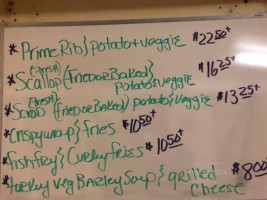 * Prime Rib } potato + veggie $22.50+
* Scallop (Fried or Baked) } potato + veggie $16.25+
(Fresh)
* Scrod (Fried or Baked) } potato + veggie $13.25+
(Fresh)
* Crispy wrap } fries $10.50+
* fish fry } Curly fries $10.50+
* Turkey Veg Barley Soup } grilled cheese $8.00